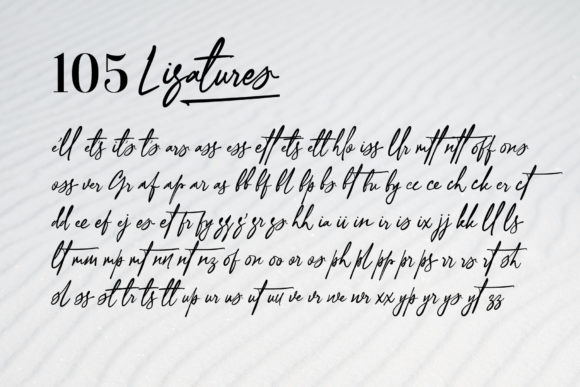 105 Ligatures
e'll ets its t's ars ass ess ett ets ett hlo iss llr mtt ntt off ons
oss ver Gr af ap ar as bb bf bl bp bs bt bu by cc ce ch ck er ct
dd ee ef ej es et fr fy gg g's gr gs hh ia ii in ir is ix jj kk ll ls
lt mm mp mt nn nt nz of on oo or os ph pl pp pr ps rr rs rt sh
sl ss st tr ts tt up ur us ut uu ve vr we wr xx yp yr ys yt zz